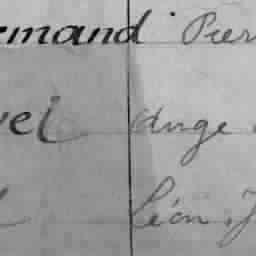 rmand Pierr
vel Ange
l Léon, J